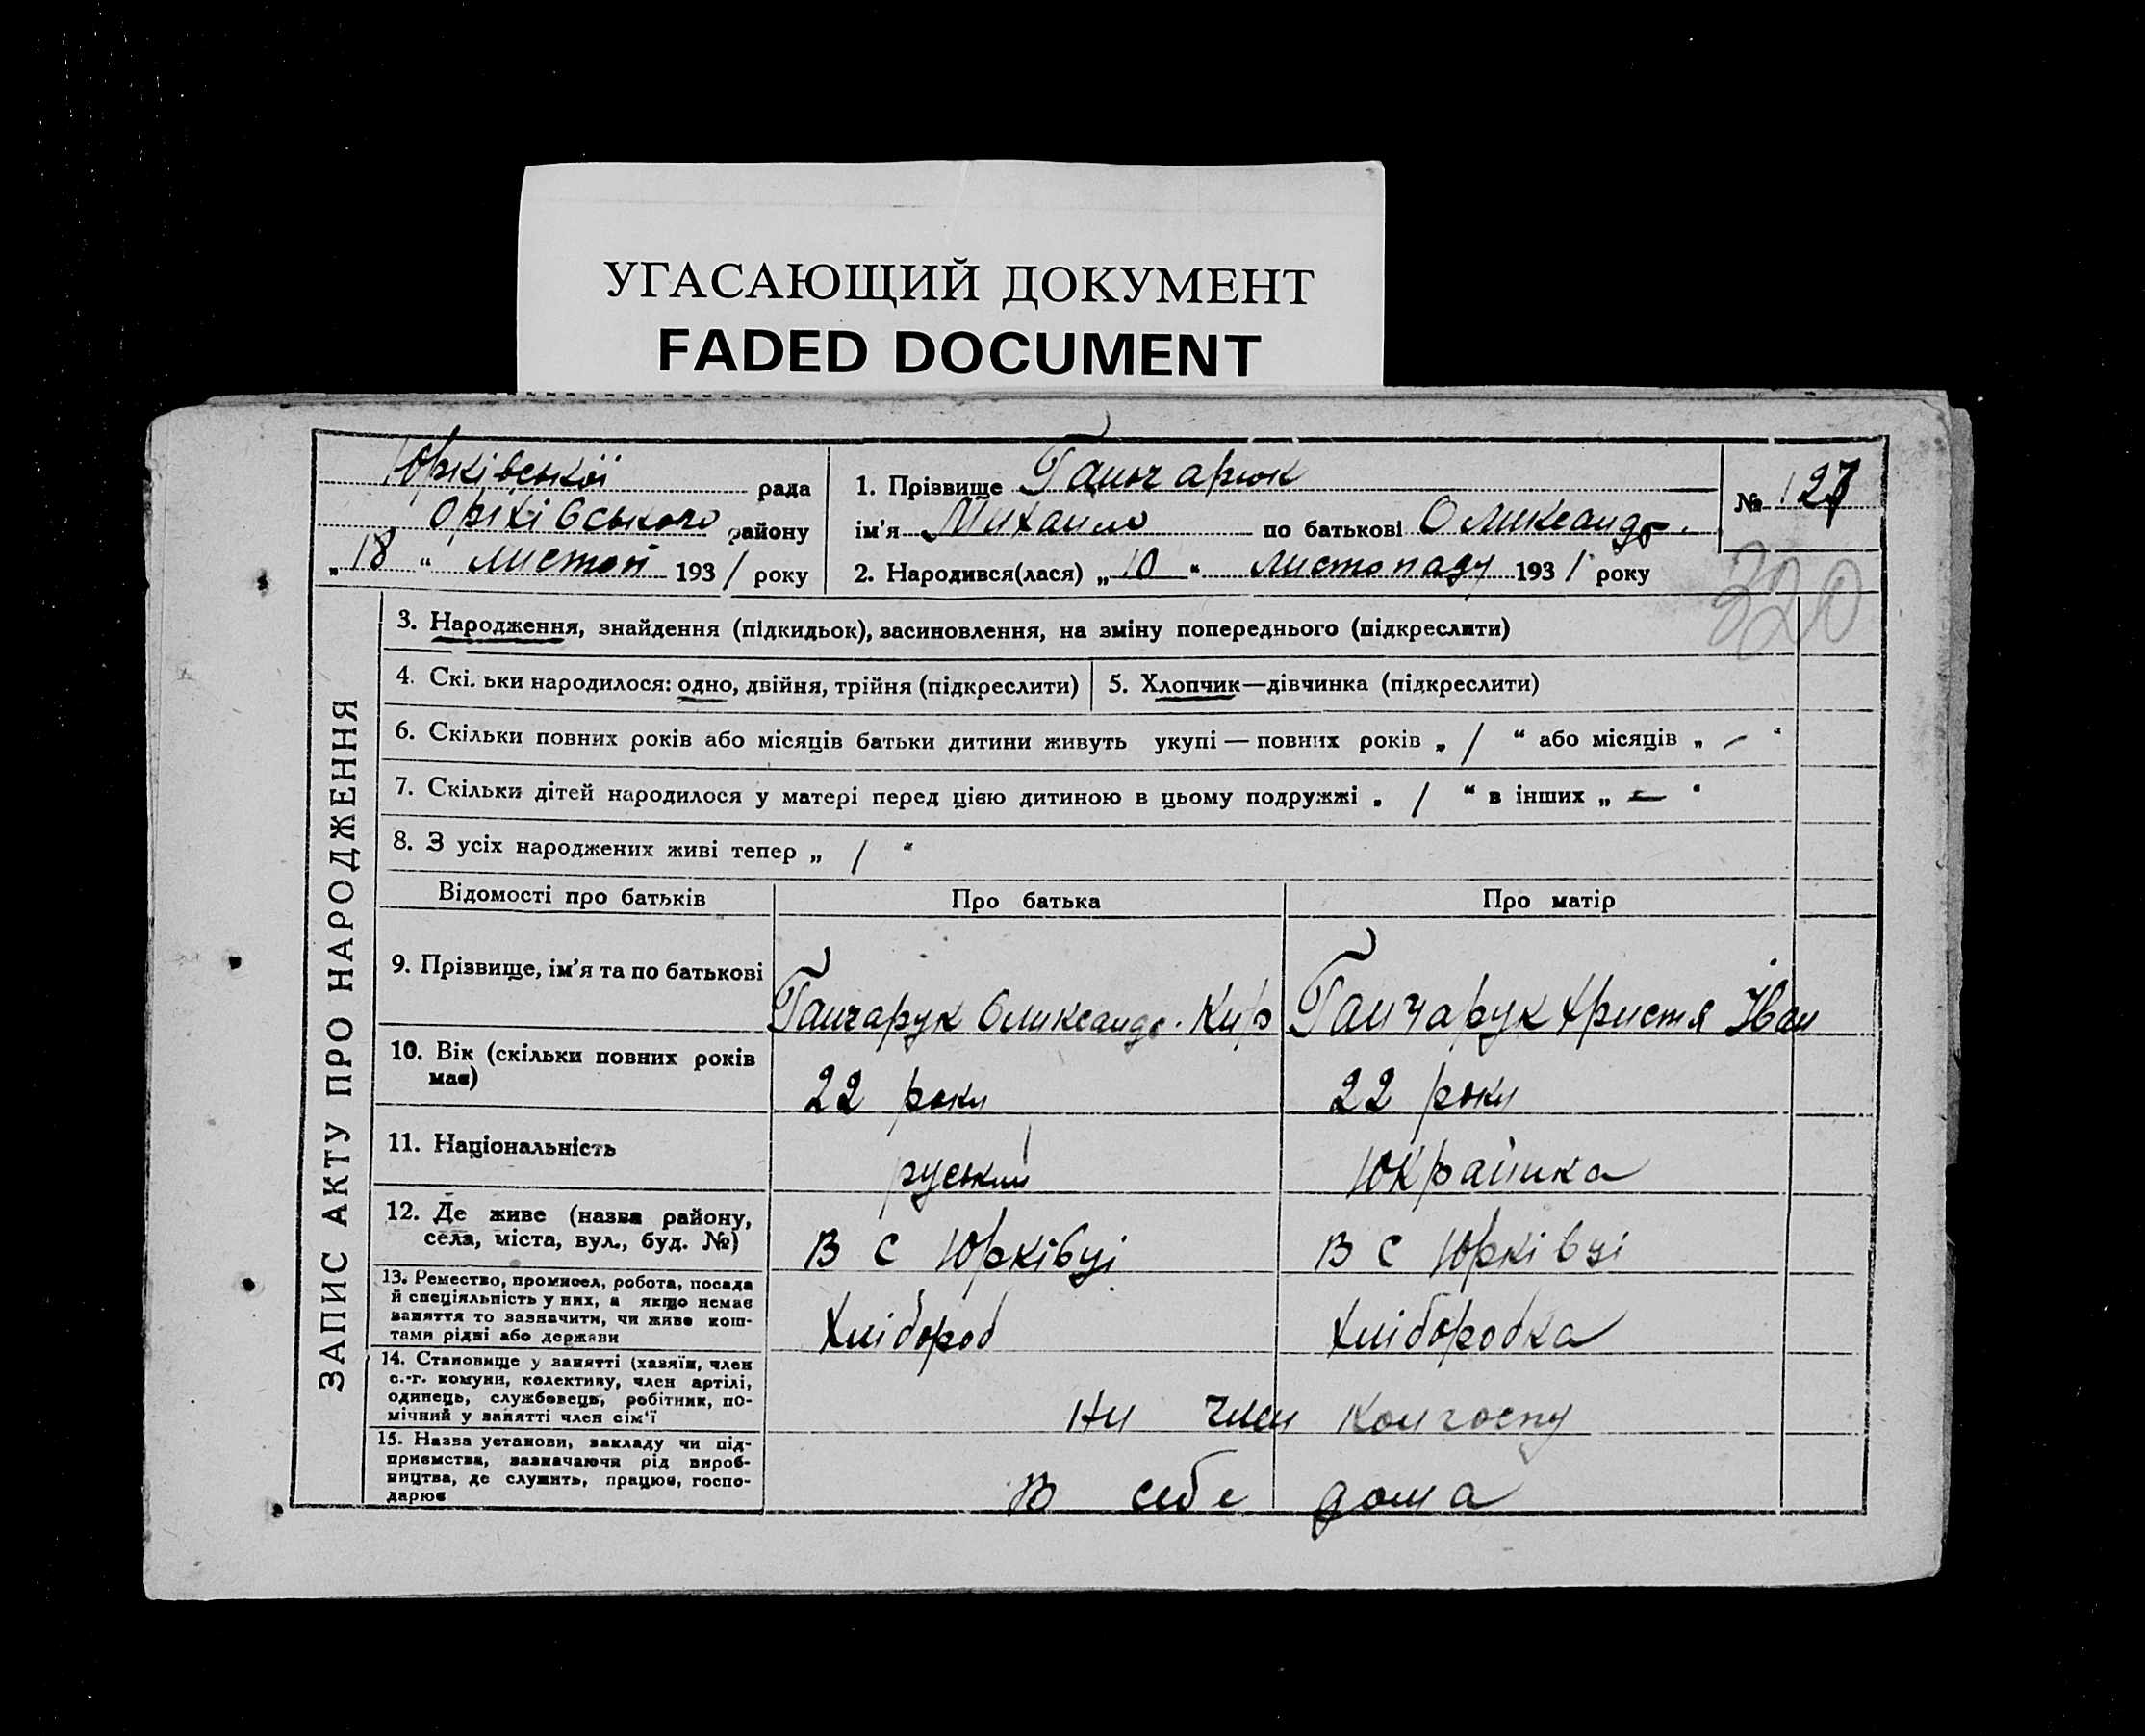 УГАСАЮЩИЙ ДОКУМЕНТ
FADED DOCUMENT
Юрківської рада
Юрківського району
„18“ листоп 1931 року
1. Прізвище Ганчарюк
ім'я Михаило по батькові Оликсандр.
2. Народився(лася) „10“ листопаду 1931 року
№ 127
320
ЗАПИС АКТУ ПРО НАРОДЖЕННЯ
3. Народження, знайдення (підкидьок), засиновлення, на зміну попереднього (підкреслити)
4. Скі. ьки народилося: одно, двійня, трійня (підкреслити)
5. Хлопчик—дівчинка (підкреслити)
6. Скільки повних років або місяців батьки дитини живуть укупі — повних років „ 1 “ або місяців „ — “
7. Скільки дітей народилося у матері перед цією дитиною в цьому подружжі „ 1 “ в інших „ — “
8. З усіх народжених живі тепер „ 1 “
Відомості про батьків
Про батька
Про матір
9. Прізвище, ім'я та по батькові
Ганчарук Оликсандр. Кир
Ганчарук Христя Іван
10. Вік (скільки повних років
має)
22 роки
22 роки
11. Національність
руський
Юкраінка
12. Де живе (назва району,
села, міста, вул., буд. №)
В с Юрківці
В с Юрківці
13. Ремество, промисел, робота, посада
й спеціяльність у них, а якщо немає
заняття то зазначити, чи живе кош-
тами рідні або держави
Хлібороб
Хліборобка
14. Становище у занятті (хазяїн, член
с.-г. комуни, колективу, член артілі,
одинець, службовець, робітник, по-
мічний у занятті член сім'ї
Ни член колгоспу
15. Назва установи, закладу чи під-
приємства, зазначаючи рід вироб-
ництва, де служить, працює, госпо-
дарює
В себе дома